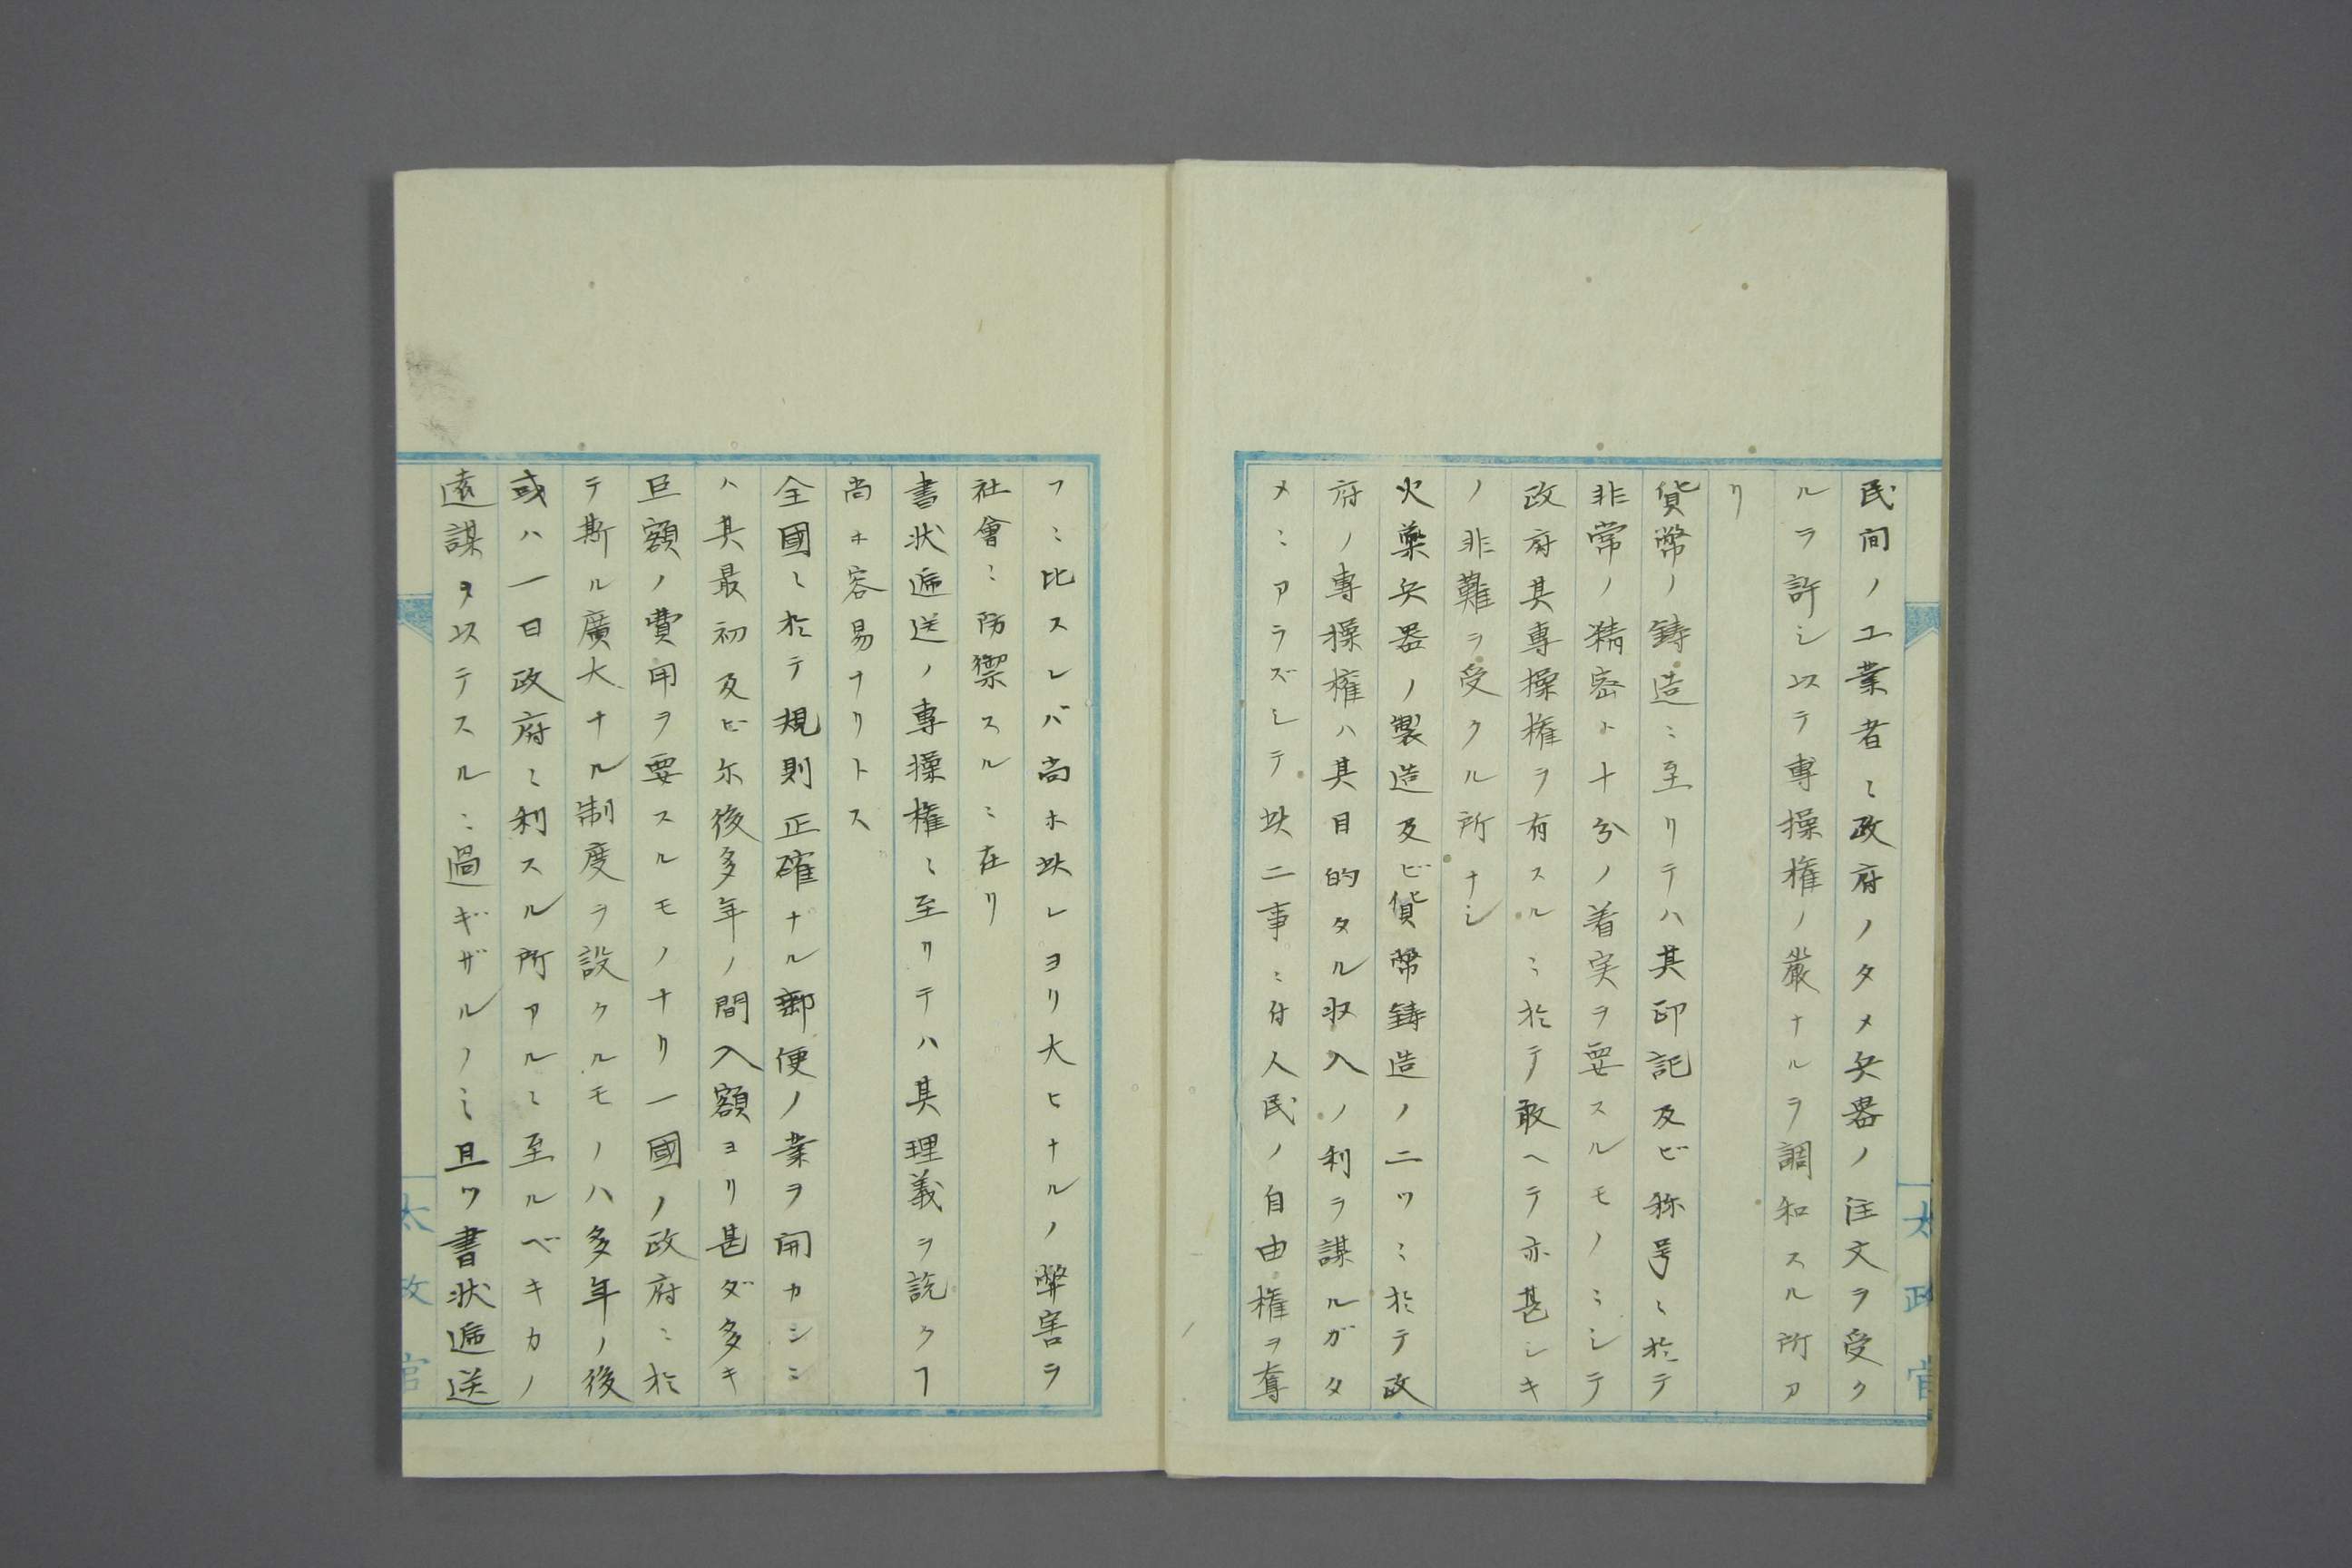 民間ノ工業者ニ政府ノタメ兵器ノ注文ヲ受ク
ルヲ許シ以テ専操権ノ厳ナルヲ調和スル所ア
リ
貨幣ノ鋳造ニ至リテハ其印記及ビ称号ニ於テ
非常ノ精密ト十分ノ着実ヲ要スルモノニシテ
政府其専操権ヲ有スルニ於テ敢ヘテ亦甚シキ
ノ非難ヲ受クル所ナシ
火薬兵器ノ製造及ビ貨幣鋳造ノ二ツニ於テ政
府ノ専操権ハ其目的タル収入ノ利ヲ謀ルガタ
メニアラズシテ此二事ニ付人民ノ自由権ヲ奪
フニ比スレバ尚ホ此レヨリ大ヒナルノ弊害ヲ
社會ニ防禦スルニ在リ
書状逓送ノ専操権ニ至リテハ其理義ヲ説クヿ
尚ホ容易ナリトス
全國ニ於テ規則正確ナル郵便ノ業ヲ開カシニ
ハ其最初及ビ尓後多年ノ間入額ヨリ甚ダ多キ
巨額ノ費用ヲ要スルモノナリ一國ノ政府ニ於
テ斯ル廣大ナル制度ヲ設クルモノハ多年ノ後
或ハ一日政府ニ利スル所アルニ至ルベキカノ
遠謀ヲ以テスルニ過ギザルノミ且ツ書状逓送
太政官
太政官